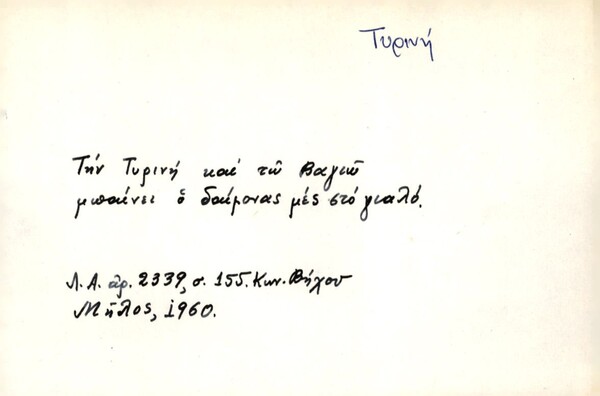 Τυρινή
Τήν Τυρινή καί τῶ Βαγιῶ
μπαίνει ὁ δαίμονας μές στό γιαλό.
Λ.Α. ἀρ. 2339, σ. 155. Κων. Βήχου
Μῆλος, 1960.